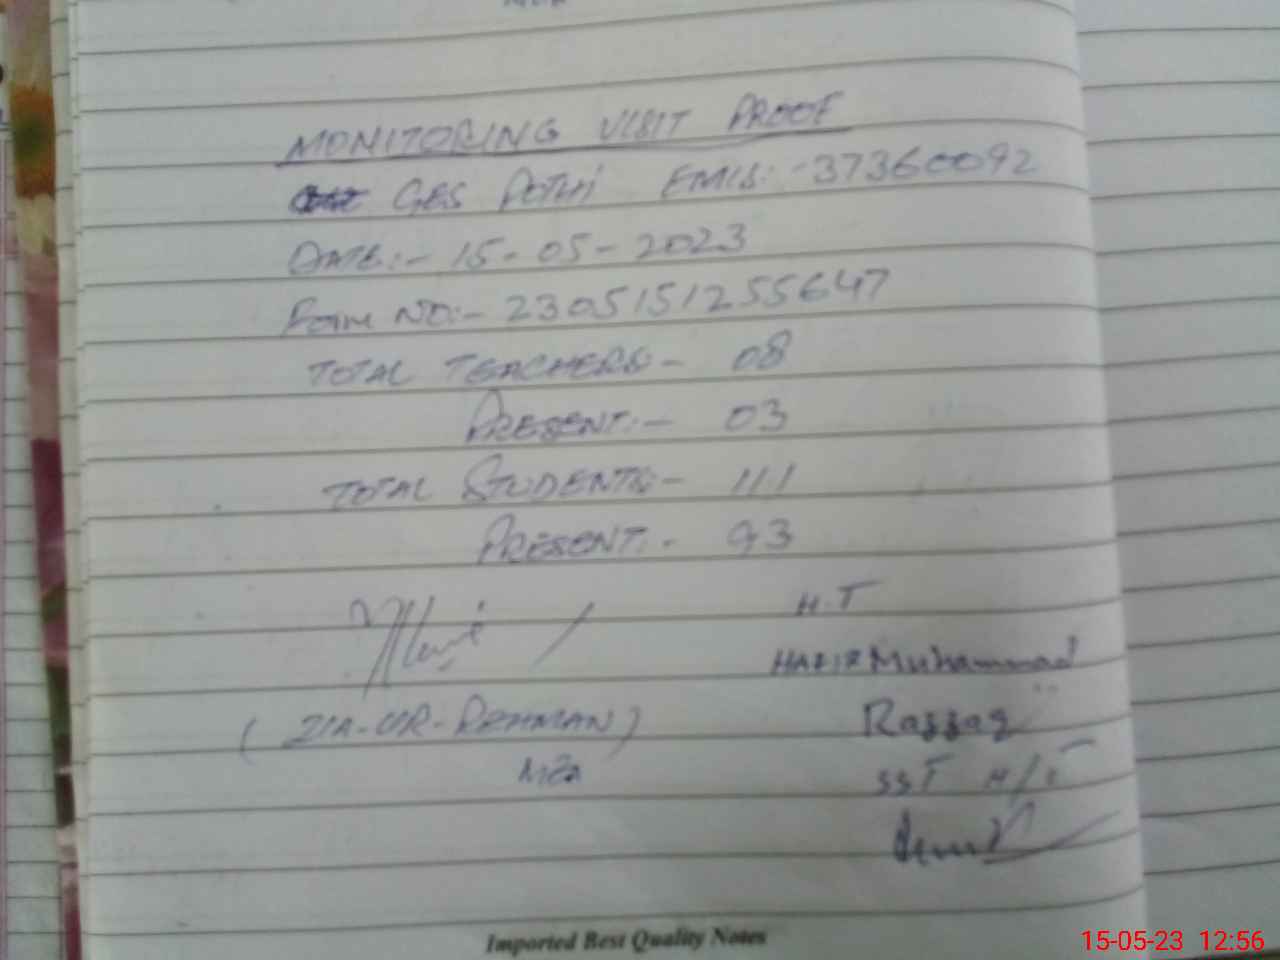 MEA
MONITORING VISIT PROOF
GES POTHI EMIS:-37360092
DATE:- 15-05-2023
FORM NO:- 2305151255647
TOTAL TEACHERS- 08
PRESENT:- 03
TOTAL STUDENTS- 111
PRESENT:- 93
H.T
HAFIZ Muhammad
(ZIA-UR-REHMAN) Razzaq
MEA SST H/T
Imported Best Quality Notes
15-05-23 12:56